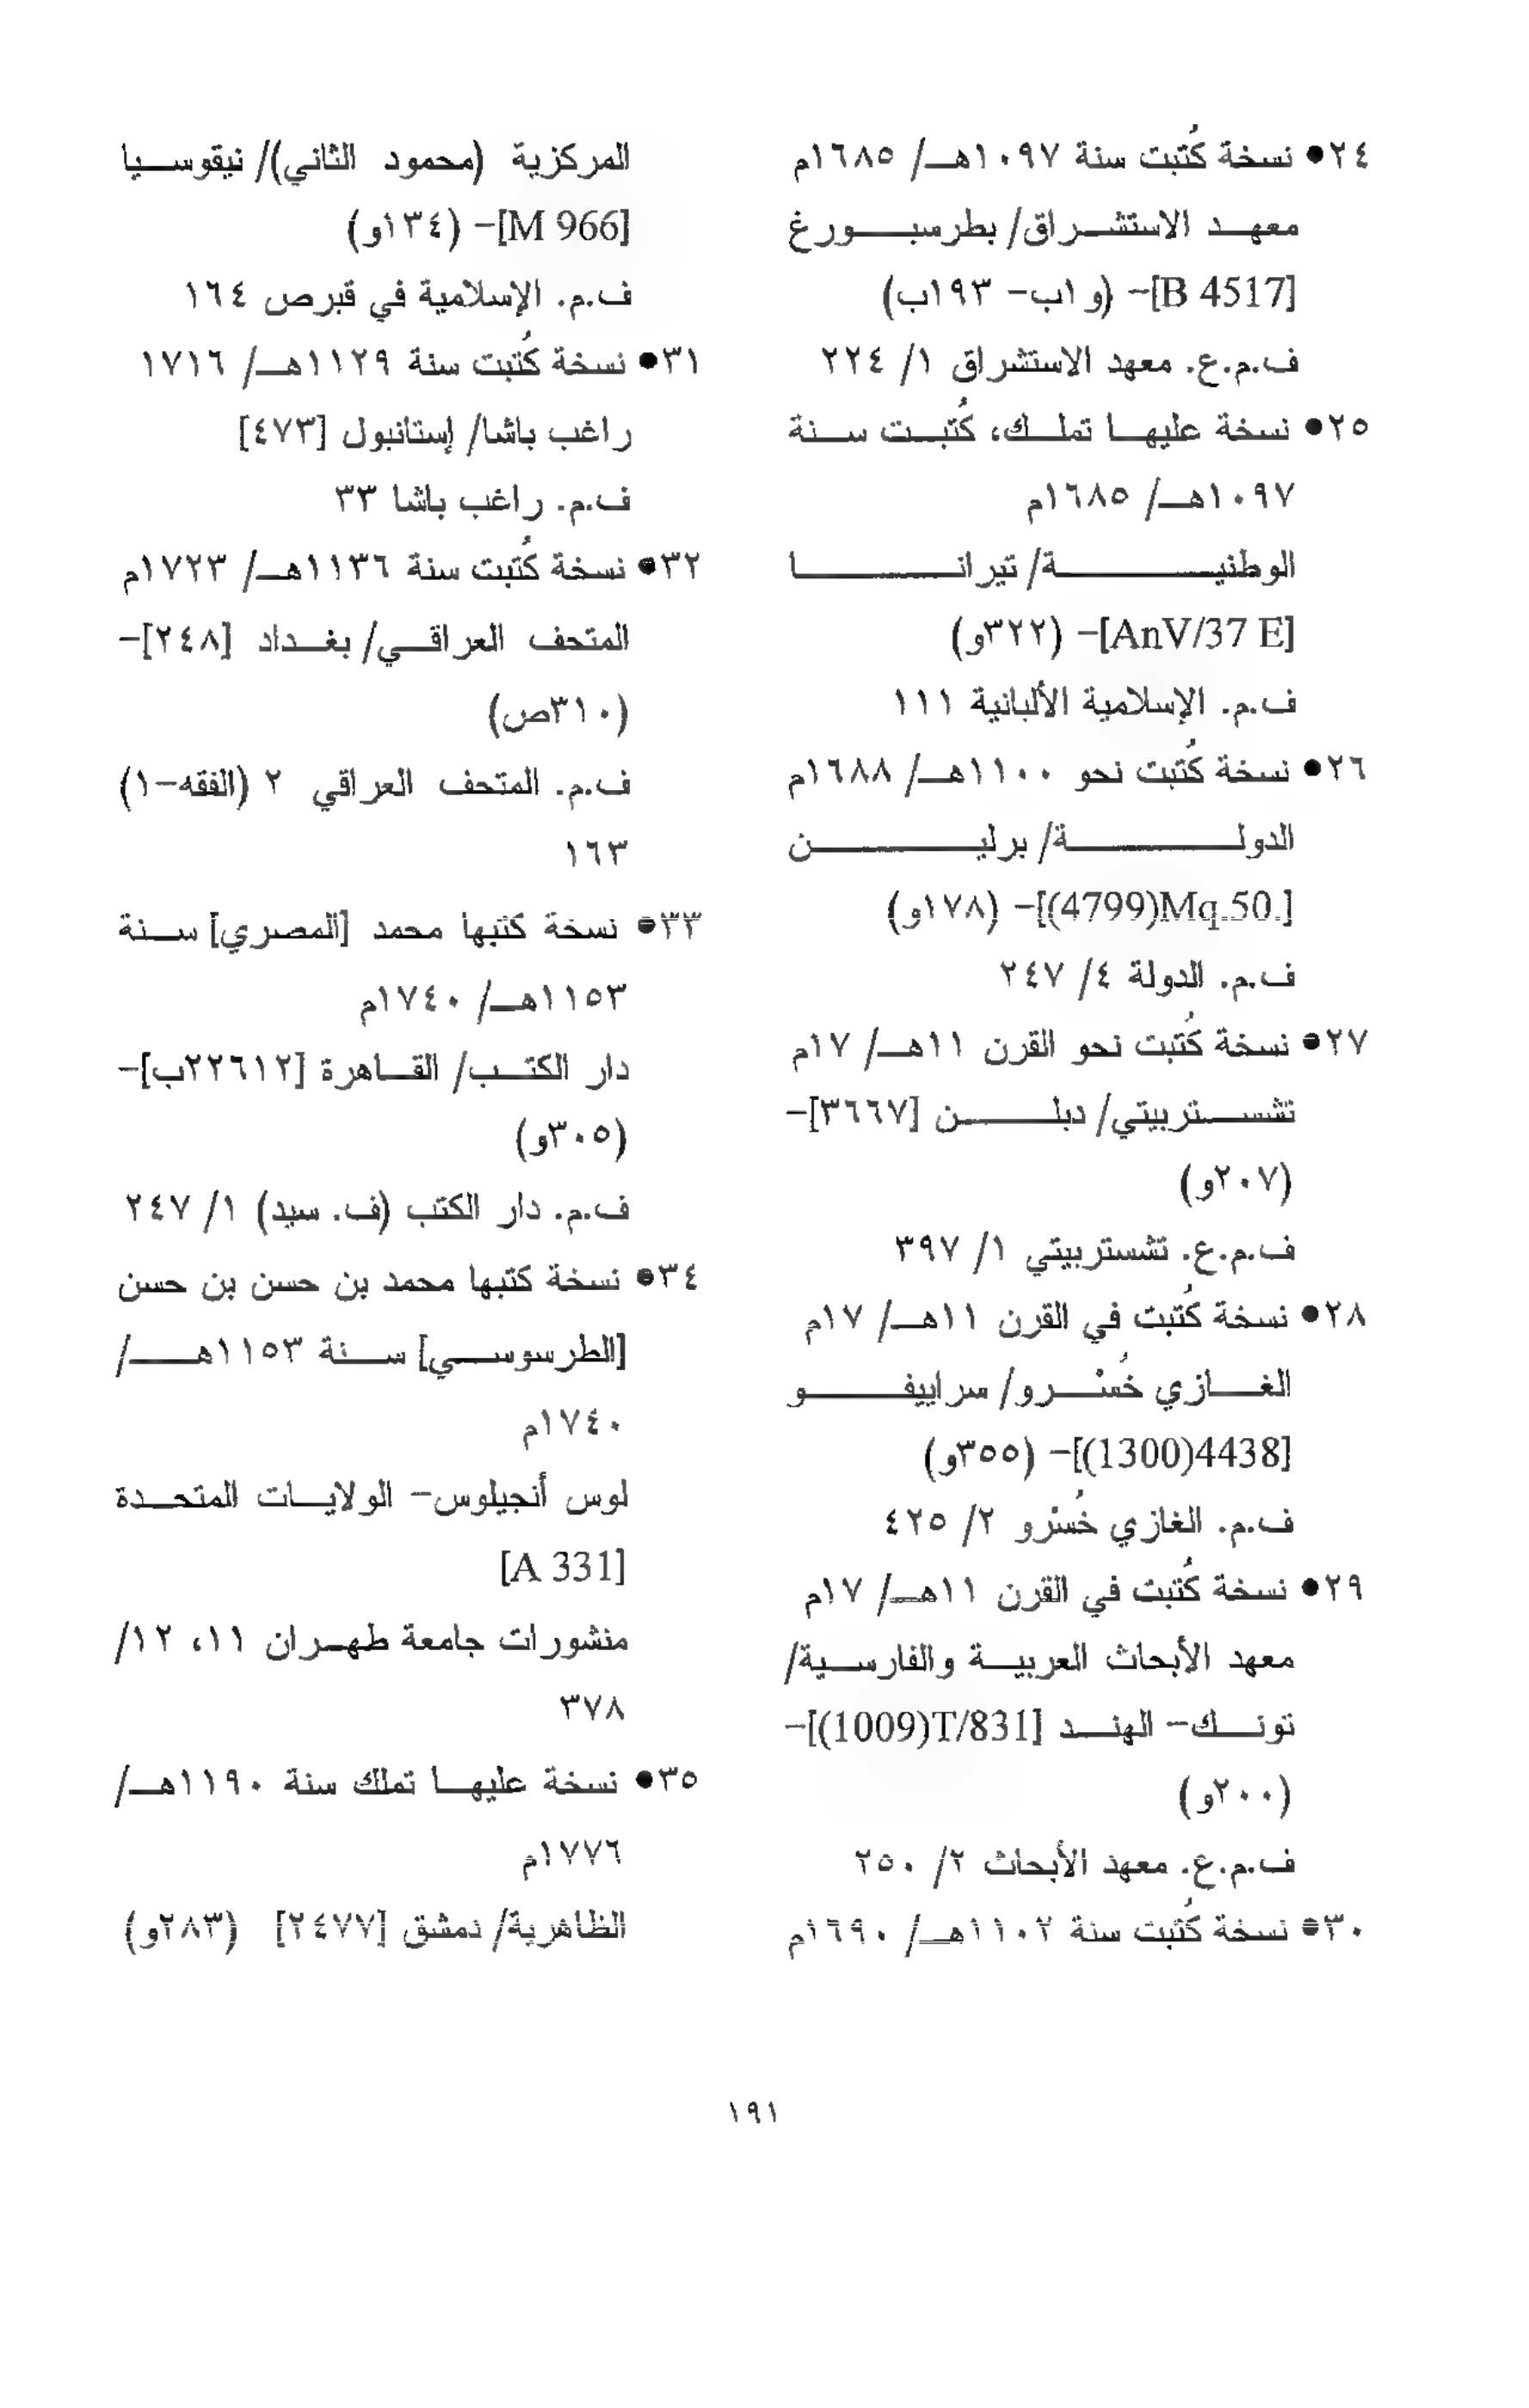 ٢٤● نسخة كُتبت سنة ١٠٩٧هـ/ ١٦٨٥م
معهد الاستشراق/ بطرسبورغ
[B 4517]- (و١ب- ١٩٣ب)
ف.م.ع. معهد الاستشراق ١/ ٢٢٤
٢٥● نسخة عليها تملك، كُتبت سنة
١٠٩٧هـ/ ١٦٨٥م
الوطنية/ تيرانا
[AnV/37 E]- (٣٢٢و)
ف.م. الإسلامية الألبانية ١١١
٢٦● نسخة كُتبت نحو ١١٠٠هـ/ ١٦٨٨م
الدولة/ برلين
[(4799)Mq.50.]- (١٧٨و)
ف.م. الدولة ٤/ ٢٤٧
٢٧● نسخة كُتبت نحو القرن ١١هـ/ ١٧م
تشستربيتي/ دبلن [٣٦٦٧]-
(٢٠٧و)
ف.م.ع. تشستربيتي ١/ ٣٩٧
٢٨● نسخة كُتبت في القرن ١١هـ/ ١٧م
الغازي خُسْرو/ سراييفو
[(1300)4438]- (٣٥٥و)
ف.م. الغازي خُسْرو ٢/ ٤٢٥
٢٩● نسخة كُتبت في القرن ١١هـ/ ١٧م
معهد الأبحاث العربية والفارسية/
تونك- الهند [(1009)T/831]-
(٢٠٠و)
ف.م.ع. معهد الأبحاث ٢/ ٢٥٠
٣٠● نسخة كُتبت سنة ١١٠٢هـ/ ١٦٩٠م
المركزية (محمود الثاني)/ نيقوسيا
[M 966]- (١٣٤و)
ف.م. الإسلامية في قبرص ١٦٤
٣١● نسخة كُتبت سنة ١١٢٩هـ/ ١٧١٦
راغب باشا/ إستانبول [٤٧٣]
ف.م. راغب باشا ٣٣
٣٢● نسخة كُتبت سنة ١١٣٦هـ/ ١٧٢٣م
المتحف العراقي/ بغداد [٢٤٨]-
(٣١٠ص)
ف.م. المتحف العراقي ٢ (الفقه-١)
١٦٣
٣٣● نسخة كتبها محمد [المصري] سنة
١١٥٣هـ/ ١٧٤٠م
دار الكتب/ القاهرة [٢٢٦١٢ب]-
(٣٠٥و)
ف.م. دار الكتب (ف. سيد) ١/ ٢٤٧
٣٤● نسخة كتبها محمد بن حسن بن حسن
[الطرسوسي] سنة ١١٥٣هـ/
١٧٤٠م
لوس أنجيلوس- الولايات المتحدة
[A 331]
منشورات جامعة طهران ١١، ١٢/
٣٧٨
٣٥● نسخة عليها تملك سنة ١١٩٠هـ/
١٧٧٦م
الظاهرية/ دمشق [٢٤٧٧] (٢٨٣و)
١٩١